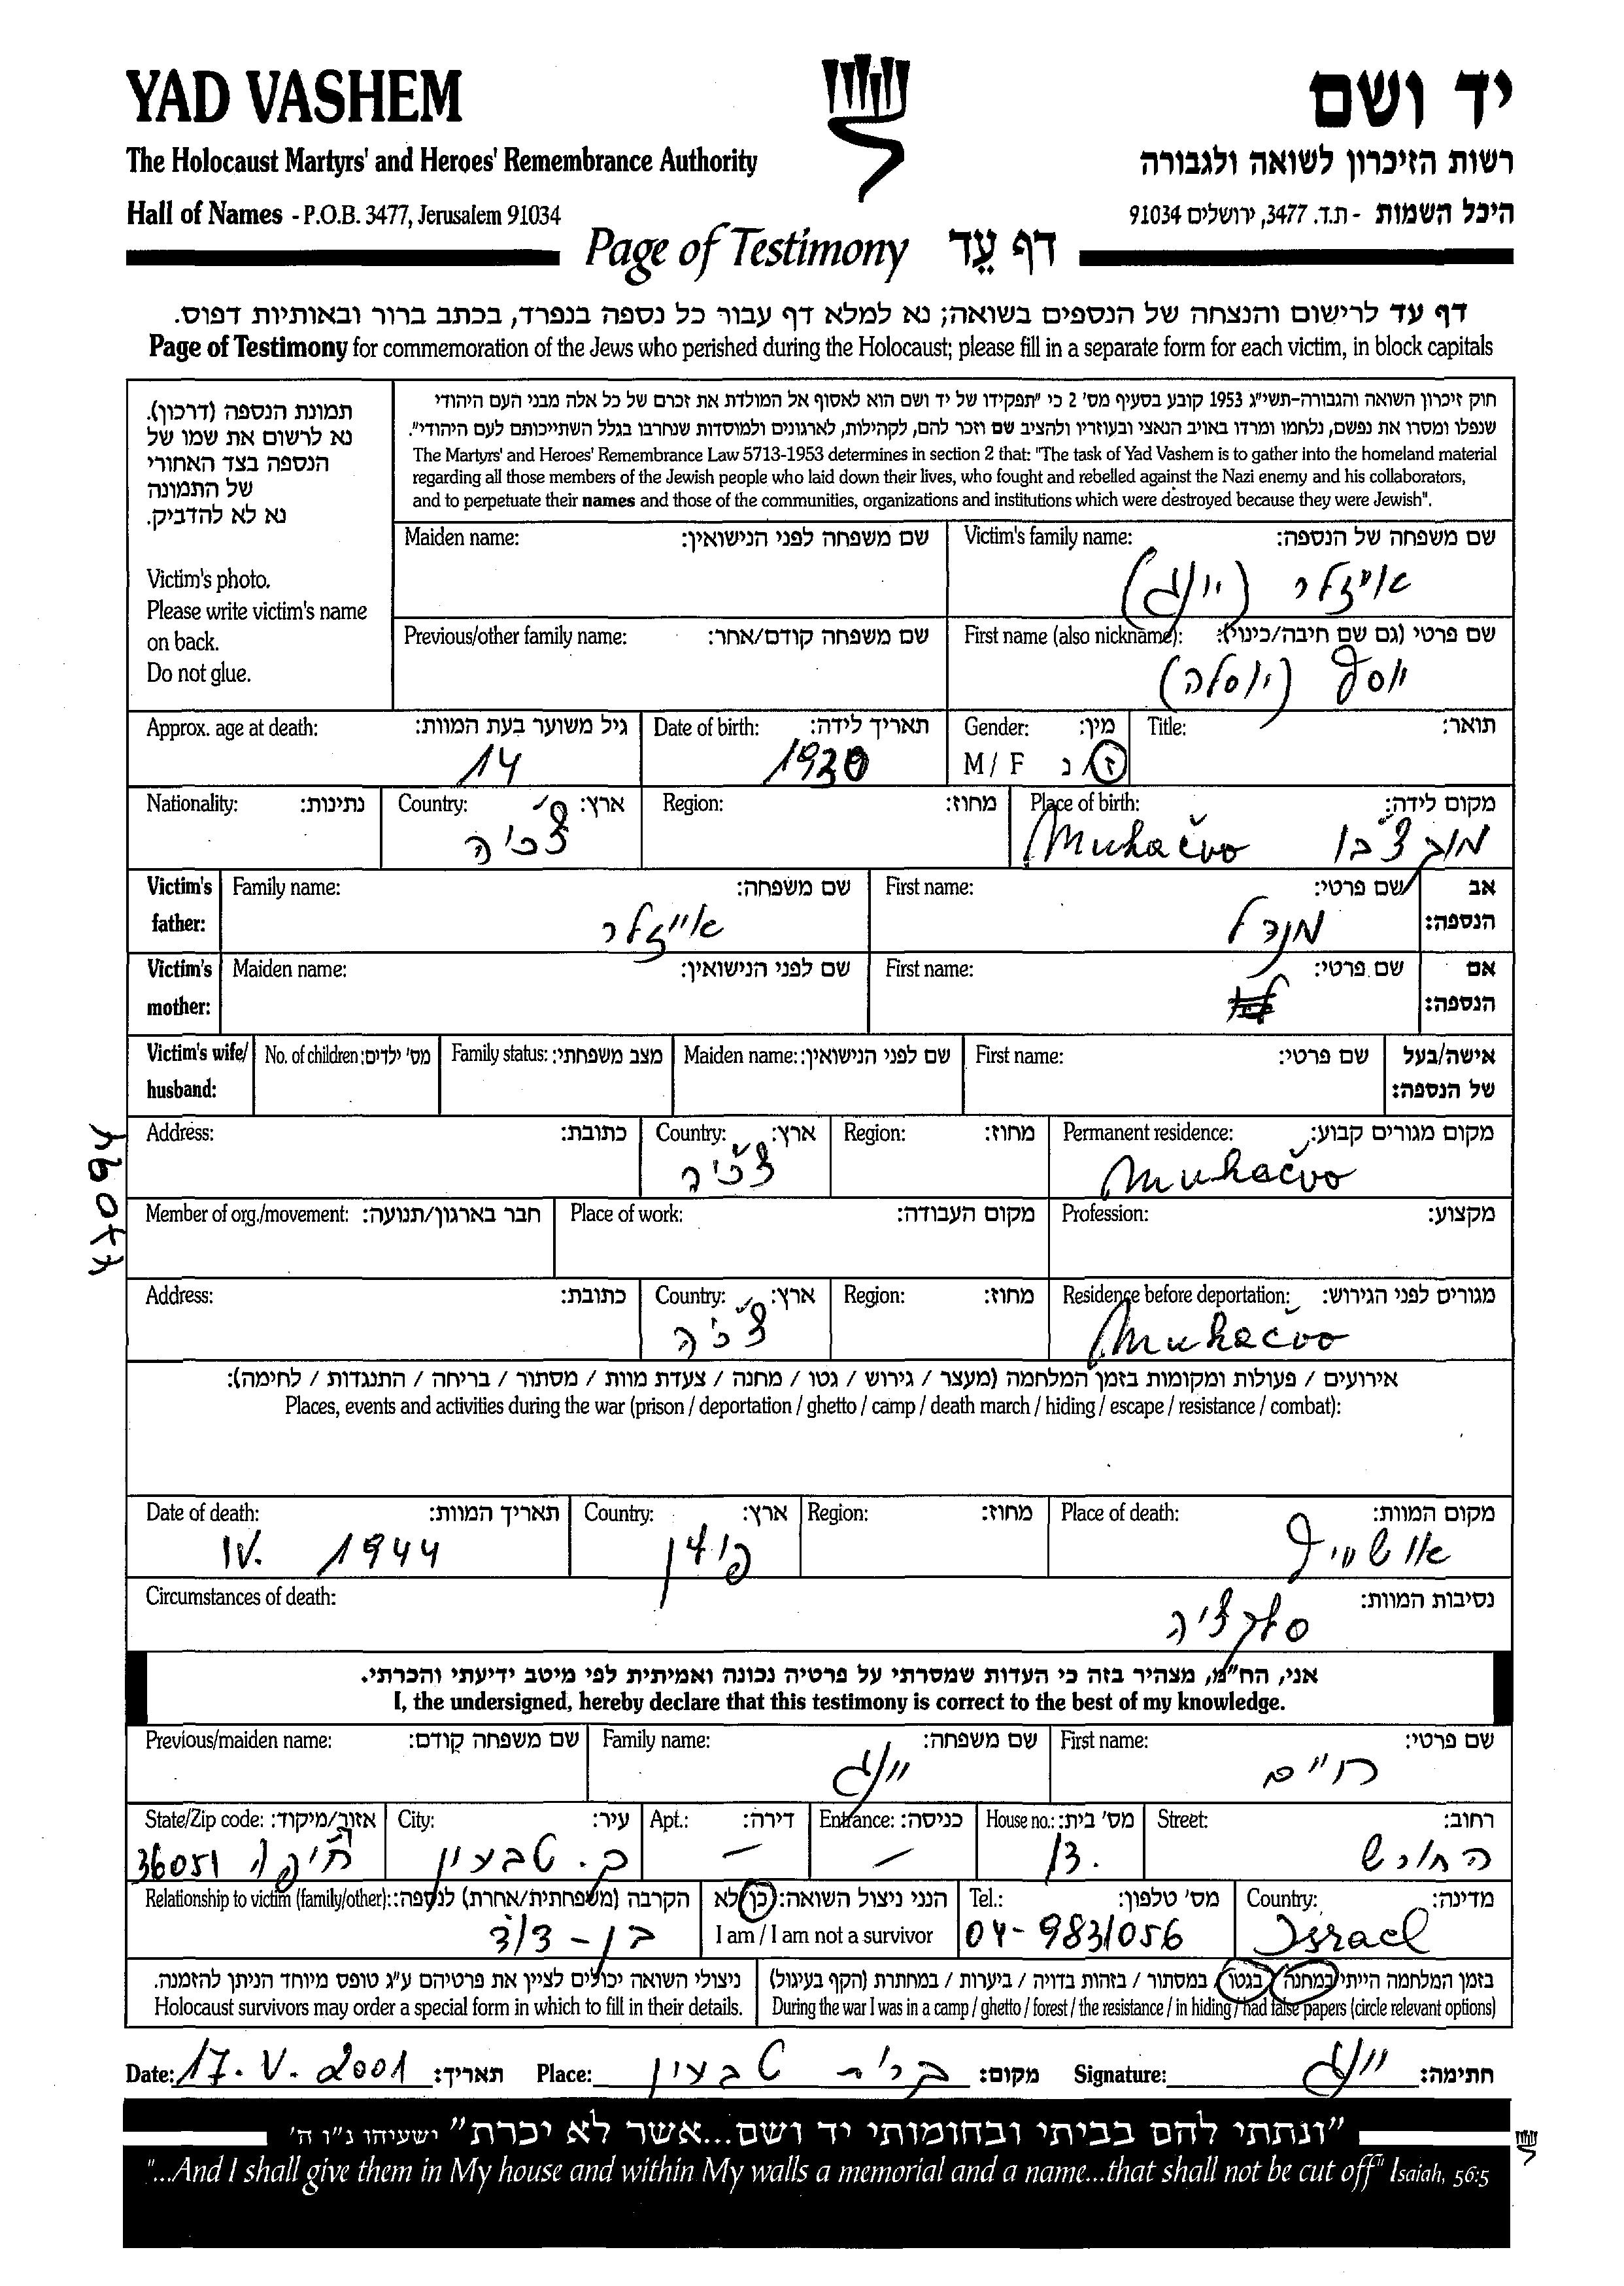 YAD VASHEM
יד ושם
The Holocaust Martyrs' and Heroes' Remembrance Authority
רשות הזיכרון לשואה ולגבורה
Hall of Names - P.O.B. 3477, Jerusalem 91034
היכל השמות - ת.ד. 3477, ירושלים 91034
Page of Testimony דף עֵד
דף עד לרישום והנצחה של הנספים בשואה; נא למלא דף עבור כל נספה בנפרד, בכתב ברור ובאותיות דפוס.
Page of Testimony for commemoration of the Jews who perished during the Holocaust; please fill in a separate form for each victim, in block capitals
תמונת הנספה (דרכון).
נא לרשום את שמו של
הנספה בצד האחורי
של התמונה
נא לא להדביק.
Victim's photo.
Please write victim's name
on back.
Do not glue.
חוק זיכרון השואה והגבורה-תשי"ג 1953 קובע בסעיף מס' 2 כי "תפקידו של יד ושם הוא לאסוף אל המולדת את זכרם של כל אלה מבני העם היהודי
שנפלו ומסרו את נפשם, נלחמו ומרדו באויב הנאצי ובעוזריו ולהציב שם וזכר להם, לקהילות, לארגונים ולמוסדות שנחרבו בגלל השתייכותם לעם היהודי".
The Martyrs' and Heroes' Remembrance Law 5713-1953 determines in section 2 that: "The task of Yad Vashem is to gather into the homeland material
regarding all those members of the Jewish people who laid down their lives, who fought and rebelled against the Nazi enemy and his collaborators,
and to perpetuate their names and those of the communities, organizations and institutions which were destroyed because they were Jewish".
Victim's family name: שם משפחה של הנספה:
אייזלר (יונג)
Maiden name: שם משפחה לפני הנישואין:
First name (also nickname): שם פרטי (גם שם חיבה/כינוי):
יוסף (יוסלה)
Previous/other family name: שם משפחה קודם/אחר:
Title: תואר:
Gender: מין:
M / F ז/נ
Date of birth: תאריך לידה:
1930
Approx. age at death: גיל משוער בעת המוות:
14
Place of birth: מקום לידה:
Mukačvo מוקצ'בו
Region: מחוז:
Country: ארץ:
צ'כיה
Nationality: נתינות:
Victim's father: אב הנספה:
First name: שם פרטי:
מנדל
Family name: שם משפחה:
אייזלר
Victim's mother: אם הנספה:
First name: שם פרטי:
Maiden name: שם לפני הנישואין:
Victim's wife/ husband: אישה/בעל של הנספה:
First name: שם פרטי:
Maiden name: שם לפני הנישואין:
Family status: מצב משפחתי:
No. of children: מס' ילדים:
Permanent residence: מקום מגורים קבוע:
Mukačvo
Region: מחוז:
Country: ארץ:
צ'כיה
Address: כתובת:
Profession: מקצוע:
Place of work: מקום העבודה:
Member of org./movement: חבר בארגון/תנועה:
Residence before deportation: מגורים לפני הגירוש:
Mukačvo
Region: מחוז:
Country: ארץ:
צ'כיה
Address: כתובת:
אירועים / פעולות ומקומות בזמן המלחמה (מעצר / גירוש / גטו / מחנה / צעדת מוות / מסתור / בריחה / התנגדות / לחימה):
Places, events and activities during the war (prison / deportation / ghetto / camp / death march / hiding / escape / resistance / combat):
Place of death: מקום המוות:
אושוויץ
Region: מחוז:
Country: ארץ:
פולין
Date of death: תאריך המוות:
IV. 1944
Circumstances of death: נסיבות המוות:
סלקציה
אני, הח"מ, מצהיר בזה כי העדות שמסרתי על פרטיה נכונה ואמיתית לפי מיטב ידיעתי והכרתי.
I, the undersigned, hereby declare that this testimony is correct to the best of my knowledge.
First name: שם פרטי:
חיים
Family name: שם משפחה:
יונג
Previous/maiden name: שם משפחה קודם:
Street: רחוב:
החורש
House no.: מס' בית:
13.
Entrance: כניסה:
—
Apt.: דירה:
—
City: עיר:
ק. טבעון
State/Zip code: אזור/מיקוד:
חיפה 36051
Country: מדינה:
Israel
Tel.: מס' טלפון:
04-9831056
הנני ניצול השואה: כן/לא
I am / I am not a survivor
Relationship to victim (family/other): הקרבה (משפחתית/אחרת) לנספה:
בן-דוד
בזמן המלחמה הייתי במחנה / בגטו / במסתור / בזהות בדויה / ביערות / במחתרת (הקף בעיגול)
During the war I was in a camp / ghetto / forest / the resistance / in hiding / had false papers (circle relevant options)
ניצולי השואה יכולים לציין את פרטיהם ע"ג טופס מיוחד הניתן להזמנה.
Holocaust survivors may order a special form in which to fill in their details.
Date: 17.V.2001 תאריך: Place: קרית טבעון מקום: Signature: יונג חתימה:
"ונתתי להם בביתי ובחומותי יד ושם...אשר לא יכרת" ישעיהו נ"ו ה'
"...And I shall give them in My house and within My walls a memorial and a name...that shall not be cut off" Isaiah, 56:5